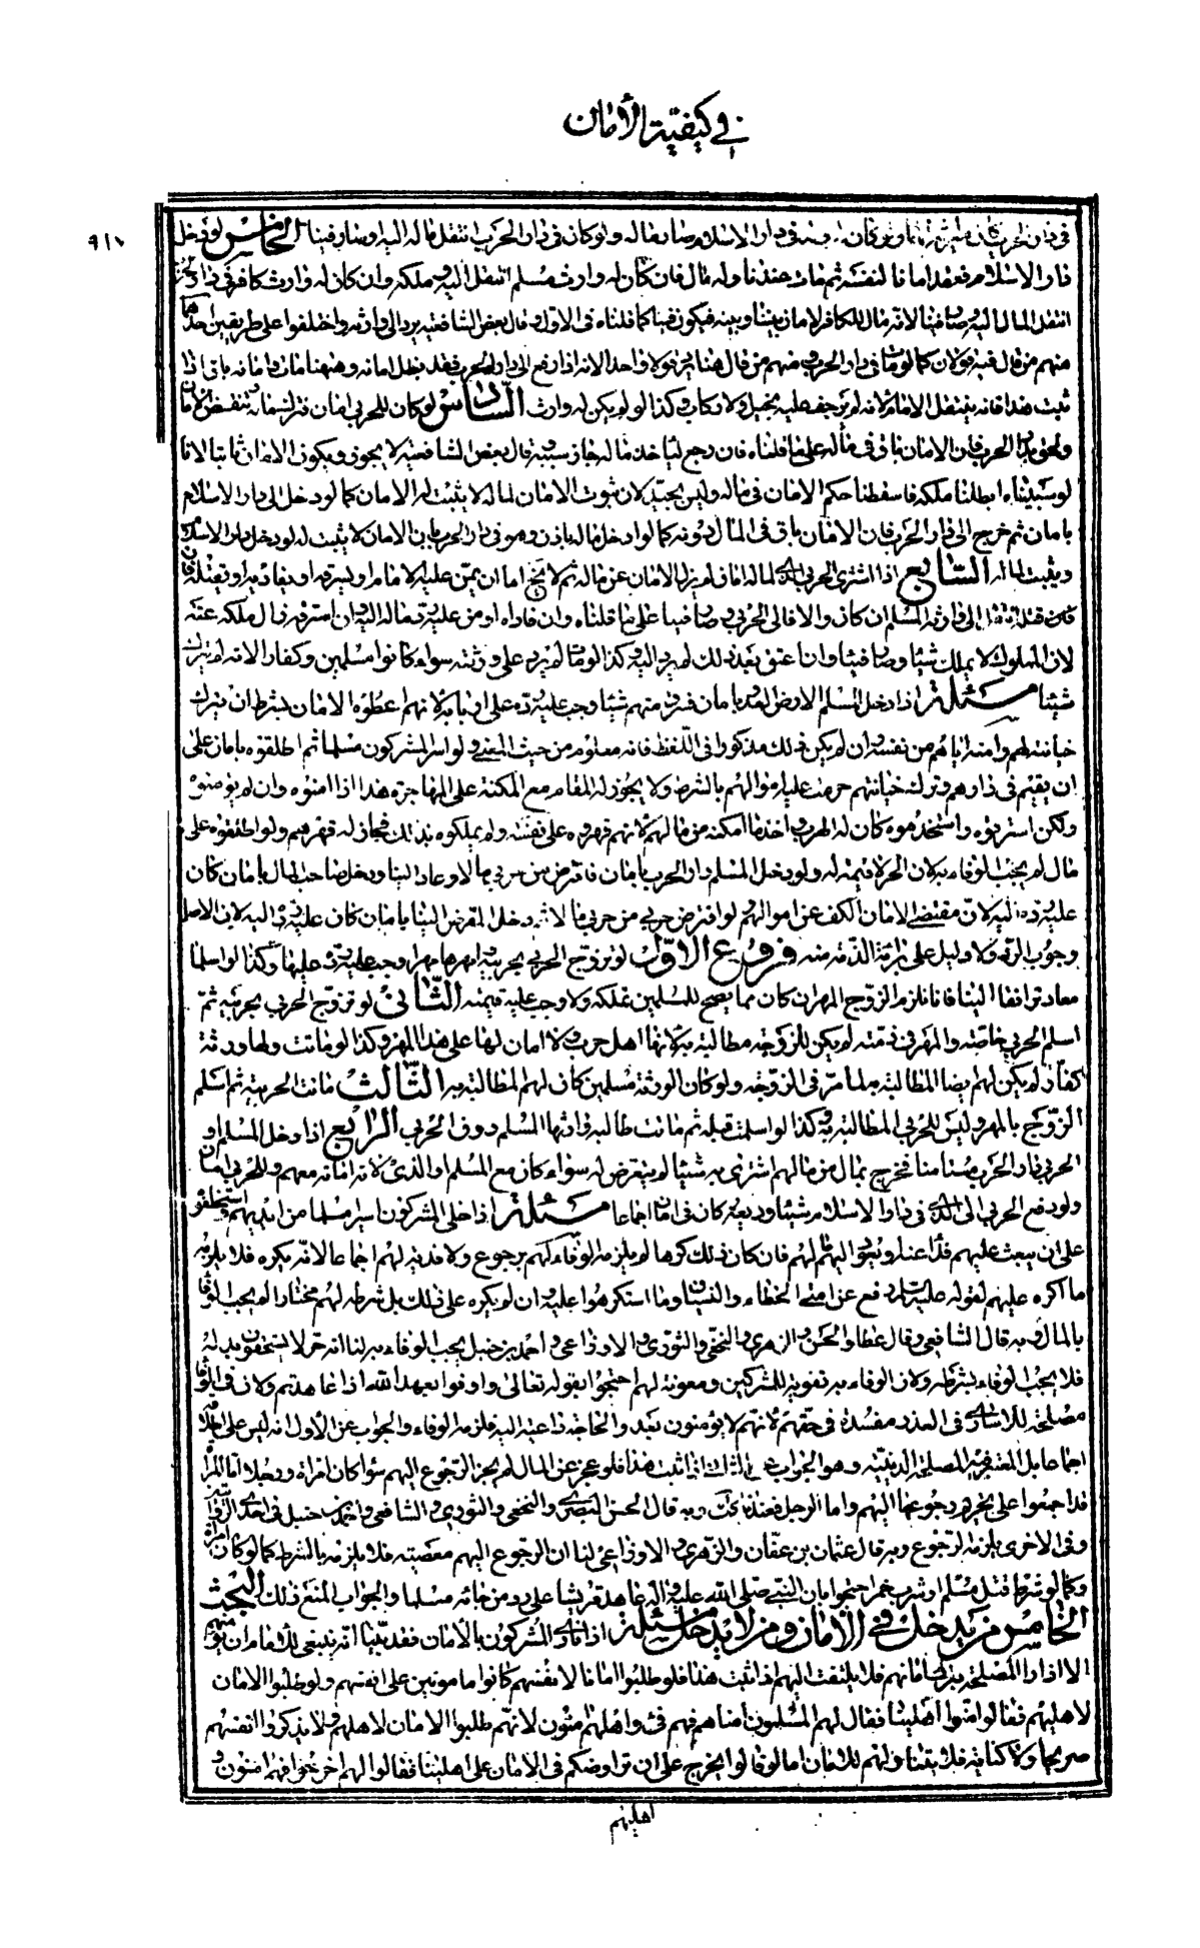 في كيفية الأمان
٩١٧
دار الإسلام فعقد أمانا لنفسه ثم مات عندنا وله مال فإن كان له وارث مسلم انتقل إليه وملكه وإن كان له وارث كافر في دار
انتقل المال إليه وصار فيئا لأنه مال لكافر لا أمان بيننا وبينه فيكون فيئا كما قلناه في الأول وقال بعض الشافعية يرد إلى وارثه واختلفوا على طريقين أحدهما
منهم من قال فيه قولان كما لو مات في دار الحرب ومنهم من قال هنا يرد قولا واحدا لأنه إذا رجع إلى دار الحرب فقد بطل أمانه وهيهنا مات وأمانه باق إذا
ثبت هذا فإنه ينتقل إلى الإمام لأنه لم يوجف عليه بخيل ولا ركاب وكذا لو لم يكن له وارث السادس لو كان للحربي أمان فترك ماله ونقض الأمان
ولحق بدار الحرب فإن الأمان باق في ماله على ما قلناه فإن رجع ليأخذ ماله جاز سبيه قال بعض الشافعية لا يجوز ويكون الأمان ثابتا لأنا
لو سبيناه أبطلنا ملكه فأسقطنا حكم الأمان في ماله وليس بجيد لأن ثبوت الأمان لماله لا يثبت له الأمان كما لو دخل إلى دار الإسلام
بأمان ثم خرج إلى دار الحرب فإن الأمان باق في المال دونه كما لو أدخل ماله بأمان وهو في دار الحرب فإن الأمان لا يثبت له لو دخل دار الإسلام
ويثبت لماله السابع إذا اشترى الحربي
لأن المملوك لا يملك شيئا وصار فيئا وإن أعتق بعد ذلك لم يرد إليه وكذا لو مات لم يرد على ورثته سواء كانوا مسلمين وكفارا لأنه لم يترك
شيئا مسئلة إذا دخل المسلم الأرض العدو بأمان فسرق منهم شيئا وجب عليه رده على أربابه لأنهم أعطوه الأمان بشرط أن يترك
خيانتهم وأمنه إياهم من نفسه وإن لم يكن ذلك مذكورا في اللفظ فإنه معلوم من حيث المعنى ولو أسر المشركون مسلما ثم أطلقوه بأمان على
أن يقيم في دارهم وترك خيانتهم حرمت عليه أموالهم بالشرط ولا يجوز له المقام مع المكنة على المهاجرة هذا إذا أمنوه وإن لم يؤمنوه
ولكن استرقوه واستخدموه كان له الهرب وأخذ ما أمكنه من مالهم لأنهم قهروه على نفسه ولم يملكوه بذلك فجاز له قهرهم ولو أطلقوه على
مال لم يجب الوفاء به لأن الحر لا قيمة له ولو دخل المسلم دار الحرب بأمان فاقترض من حربي مالا وعاد إلينا ودخل صاحب المال بأمان كان
عليه رده إليه لأن مقتضى الأمان الكف عن أموالهم لو اقترض حربي من حربي مالا ثم دخل المقرض إلينا بأمان كان عليه رده إليه لأن الأصل
وجوب الرد ولا دليل على براءة الذمة منه فروع الأول لو تزوج الحربي بحربية وأمهرها مهرا وجب عليه رده عليها وكذا لو أسلما
معا وترافعا إلينا فإنا نلزم الزوج المهر إن كان مما يصح للمسلمين تملكه وإلا وجب عليه قيمته الثاني لو تزوج الحربي بحربية ثم
أسلم الحربي خاصة والمهر في ذمته لم يكن للزوجة مطالبته به لأنها أهل حرب ولا أمان لها على هذا المهر وكذا لو ماتت ولها ورثة
كفار لم يكن لهم أيضا المطالبة به لما مر في الزوجة ولو كان الورثة مسلمين كان لهم المطالبة به الثالث ماتت الحربية ثم أسلم
الزوج بالمهر وليس للحربي المطالبة به وكذا لو أسلمت قبله ثم ماتت طالبه وارثها المسلم دون الحربي الرابع إذا دخل المسلم أو
الحربي دار الحرب مستأمنا فخرج بمال من مالهم اشترى به شيئا لم يتعرض له سواء كان مع المسلم أو الذمي لأنه أمانة معهم وللحربي أمان
ولو دفع الحربي إلى الذمي في دار الإسلام شيئا وديعة كان في أمان إجماعا مسئلة إذا خلى المشركون أسيرا مسلما من أيديهم استحلفوه
على أن يبعث عليهم فداء عنه أو يعود إليهم فإن كان ذلك كرها لم يلزمه الوفاء لهم برجوع ولا فدية لهم إجماعا لأنه مكره فلا يلزمه
ما أكره عليهم لقوله عليه السلام رفع عن أمتي الخطاء والنسيان وما استكرهوا عليه وإن لم يكره على ذلك بل شرطه لهم مختارا لم يجب الوفاء
بالمال وبه قال الشافعي وقال عطاء والحسن والزهري والنخعي والثوري والأوزاعي وأحمد بن حنبل يجب الوفاء به لنا أنه حر لا يستحقون بدله
فلا يجب الوفاء بشرطه ولأن الوفاء به تقوية للمشركين ومعونة لهم احتجوا بقوله تعالى وأوفوا بعهد الله إذا عاهدتم ولأن في الوفاء
مصلحة للأسارى وفي الغدر مفسدة في حقهم لأنهم لا يؤمنون بعده والحاجة داعية إليه فلزمه الوفاء والجواب عن الأول أنه ليس على
إذا ثبت هذا فلو عجز عن المال لم يجز الرجوع إليهم سواء كان امرأة ورجلا أما المرأة
فقد أجمعوا على تحريم رجوعها إليهم وأما الرجل فعندنا كذلك وبه قال الحسن البصري والنخعي والثوري والشافعي وأحمد بن حنبل في إحدى الروايتين
وفي الأخرى يلزمه الرجوع وبه قال عثمان بن عفان والزهري والأوزاعي لنا أن الرجوع إليهم معصية فلا يلزمه بالشرط كما لو كان امرأة
وكما لو شرط قتل مسلم أو شرب خمر احتجوا بأن النبي صلى الله عليه وآله عاهد قريشا على رد من جاءه مسلما والجواب المنع ذلك البحث
الخامس فيمن يدخل في الأمان ومن لا يدخل مسئلة إذا نادى المشركون بالأمان فقد بينا أنه ينبغي للإمام أن يؤمنهم
إلا إذا رأى المصلحة بترك أمانهم فلا يلتفت إليهم إذا ثبت هذا فلو طلبوا أمانا لأنفسهم كانوا مأمونين على أنفسهم ولو طلبوا الأمان
لأهليهم فقالوا أمنوا أهلينا فقال لهم المسلمون أمناهم فهم فئ وأهلهم آمنون لأنهم طلبوا الأمان لأهلهم ولم يذكروا أنفسهم
صريحا ولا كناية فلا يتناولهم الأمان أما لو قالوا نخرج على أن تراوضكم في الأمان على أهلينا فقالوا لهم اخرجوا فهم آمنون و
أهليهم